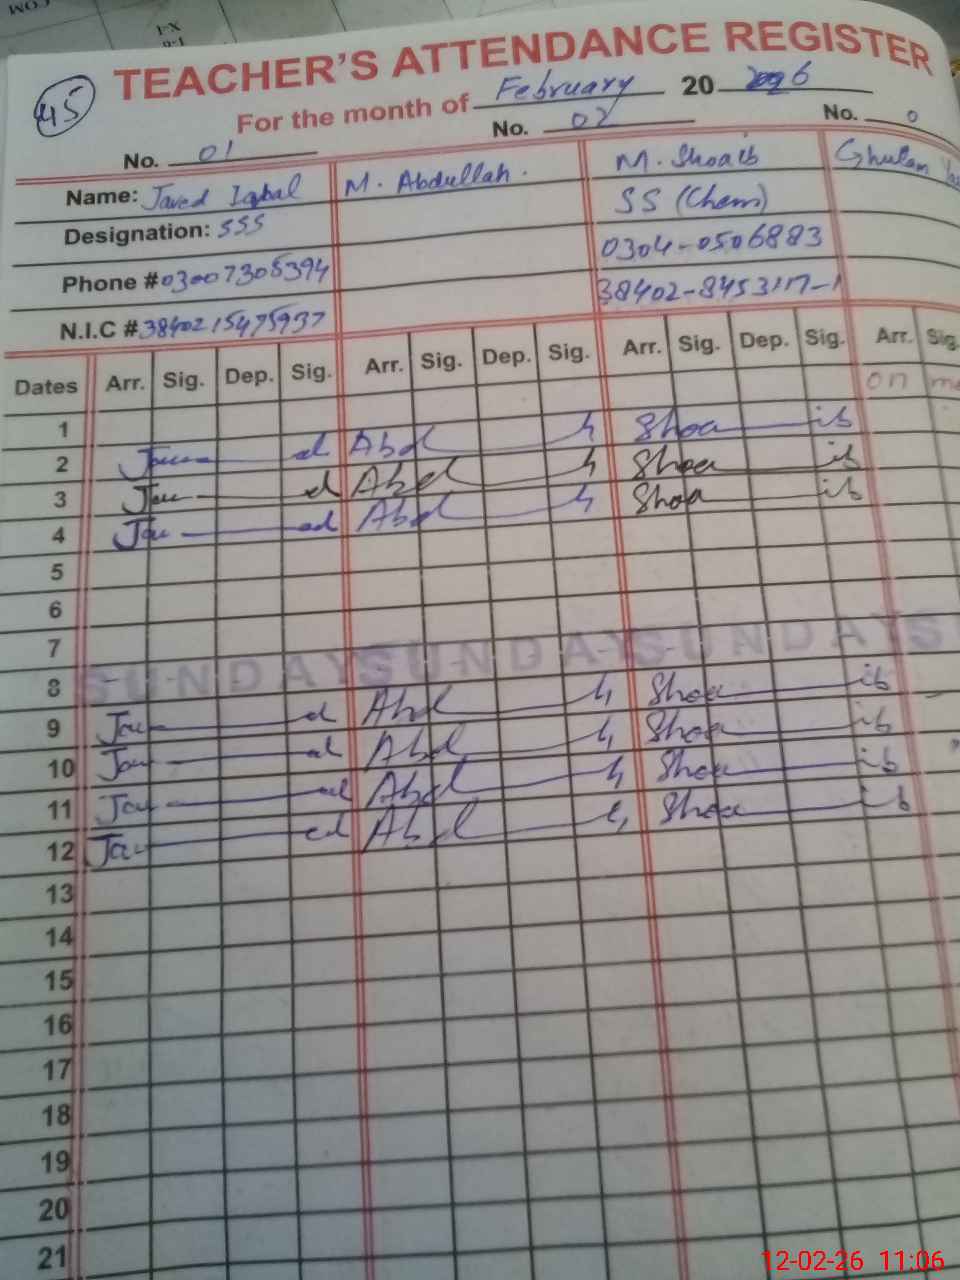 45
TEACHER'S ATTENDANCE REGISTER
For the month of February 20 26
No. 01 No. 02 No. 0
Name: Javed Iqbal M. Abdullah. M. Shoaib Ghulam
Designation: SSS SS (Chem)
Phone #03007305394 0304-0506883
N.I.C #3840215475937 38402-8453117-1
Dates Arr. Sig. Dep. Sig. Arr. Sig. Dep. Sig. Arr. Sig. Dep. Sig. Arr. Sig.
on
1
2 Jav d Abd h Shoa ib
3 Jav d Abd h Shoa ib
4 Jav ad Abd h Shoa ib
5
6
7
8 SUNDAY SUNDAY SUNDAY S
9 Jav d Abd h Shoa ib
10 Jav d Abd h Shoa ib
11 Jav d Abd h Shoa ib
12 Jav ed Abd h Shoa ib
13
14
15
16
17
18
19
20
21
12-02-26 11:06